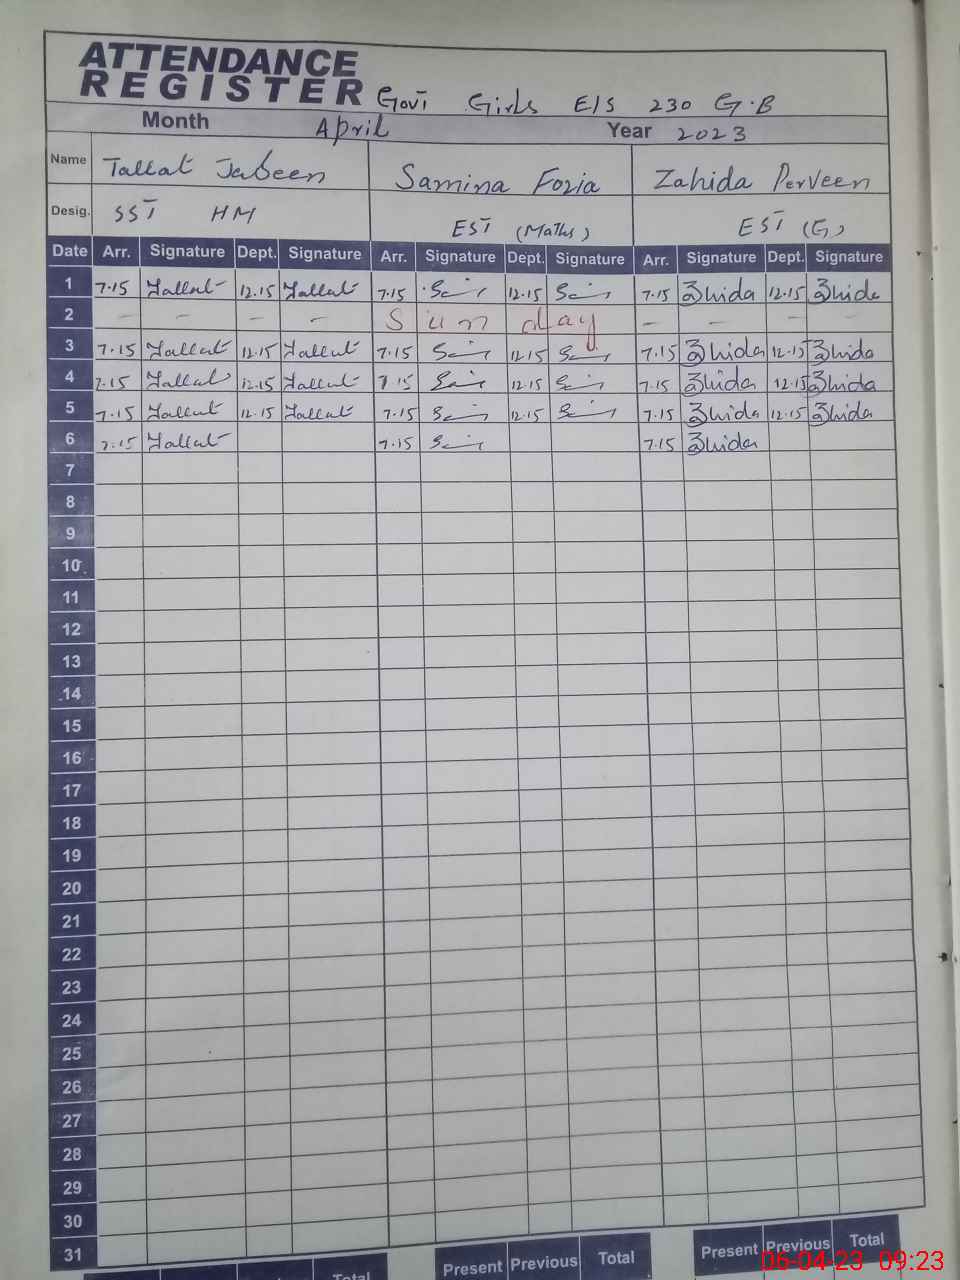 ATTENDANCE
REGISTER Govt Girls E/S 230 G.B
Month April Year 2023
Name Tallat Jabeen Samina Fozia Zahida Perveen
Desig. SST HM EST (Maths) EST (G)
Date Arr. Signature Dept. Signature Arr. Signature Dept. Signature Arr. Signature Dept. Signature
1 7.15 Tallat 12.15 Tallat 7.15 12.15 7.15 Zahida 12.15 Zahida
2 - - - - Sunday - - - -
3 7.15 Tallat 12.15 Tallat 7.15 12.15 7.15 Zahida 12.15 Zahida
4 7.15 Tallat 12.15 Tallat 7.15 12.15 7.15 Zahida 12.15 Zahida
5 7.15 Tallat 12.15 Tallat 7.15 12.15 7.15 Zahida 12.15 Zahida
6 7.15 Tallat 7.15 7.15 Zahida
7
8
9
10
11
12
13
14
15
16
17
18
19
20
21
22
23
24
25
26
27
28
29
30
31
Total Present Previous Total Present Previous Total
06-04-23 09:23